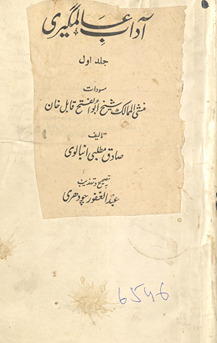 آداب عالمگیری
جلد اول
مسودات
منشی الممالک شیخ ابوالفتح قابل خان
تالیف
صادق مطلبی انبالوی
بہ تصحیح و تہذیب
عبدالغفور چودھری
6546